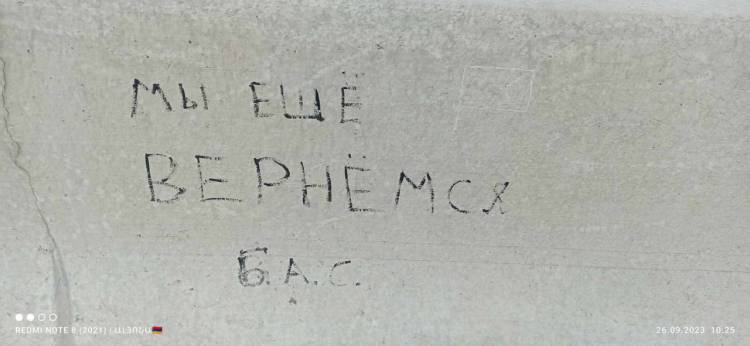 МЫ ЕЩЁ
ВЕРНЁМСЯ
Б.А.С.
REDMI NOTE 8 (2021) | ԱԼՅՈՆԱ🇦🇲
26.09.2023 10:25